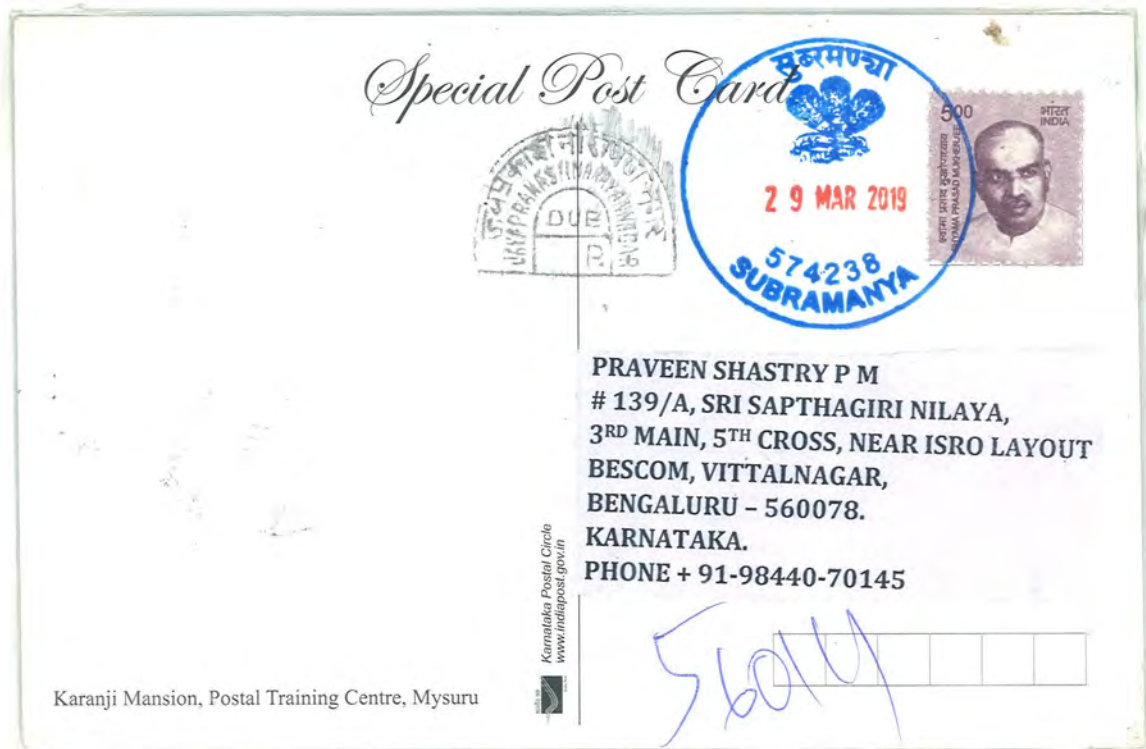 Special Post Card
सुब्रमण्या
29 MAR 2019
574238
SUBRAMANYA
500
भारत
INDIA
श्यामा प्रसाद मुखोपाध्याय
SHYAMA PRASAD MUKHERJEE
JAYAPRAKASHNARAYANNAGAR
PRAVEEN SHASTRY P M
# 139/A, SRI SAPTHAGIRI NILAYA,
3RD MAIN, 5TH CROSS, NEAR ISRO LAYOUT
BESCOM, VITTALNAGAR,
BENGALURU – 560078.
KARNATAKA.
PHONE + 91-98440-70145
Karnataka Postal Circle
www.indiapost.gov.in
Karanji Mansion, Postal Training Centre, Mysuru